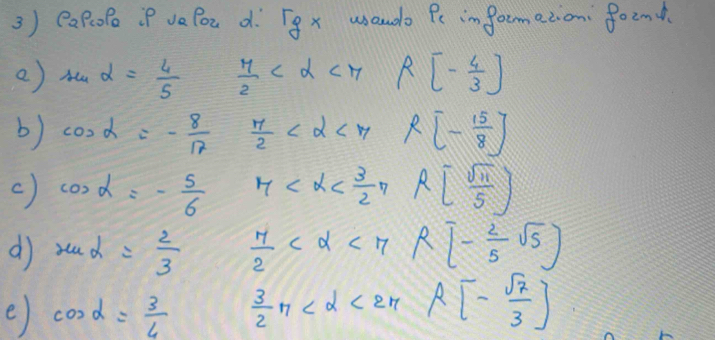 3) Calcola il valore di Tg x usando le informazioni fornite
a) sen α = 4/5 π/2 < α < π R [- 4/3]
b) cos α = - 8/17 π/2 < α < π R [- 15/8]
c) cos α = - 5/6 π < α < 3/2 π R [√11/5]
d) sen α = 2/3 π/2 < α < π R [- 2/5 √5]
e) cos α = 3/4 3/2 π < α < 2π R [- √7/3]